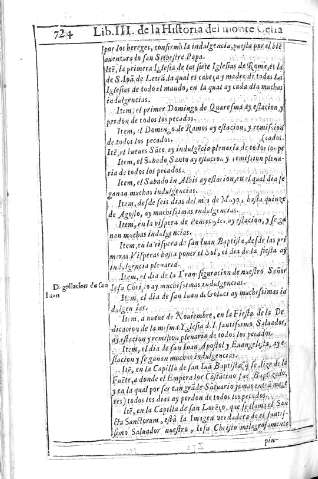 724 Lib. III. de la Historia del monte Celia
por los hereges, confirmò la indulgencia, puesta por el bie
aventurado san Silvestre Papa.
Itē, la primera Iglesia de las siete Iglesias de Roma, es la
de S. Iuā de Letrā, la qual es cabeça y madre de todas las
Iglesias de todo el mundo, en la qual ay cada dia muchas
indulgencias.
Item, el primer Domingo de Quaresma ay estacion, y
perdon de todos los pecados.
Item, el Domingo de Ramos ay estacion, y remission
de todos los pecados.
Itē, el Iueves Sāto, ay indulgēcia plenaria de todos los pe
Item, el Sabado Santo ay estacion, y remission plena-
ria de todos los pecados.
Item, el Sabado in Albis ay estacion, en el qual dia se
ganan muchas indulgencias.
Item, desde seis dias del mes de Mayo, hasta quinze
de Agosto, ay muchissimas indulgencias.
Item, en la vispera de ay estacion, y se ga-
nan muchas indulgencias.
Item, en la vispera de san Iuan Baptista, desde las pri-
meras Visperas hasta poner el Sol, el dia de la fiesta ay
indulgencia plenaria.
Item, el dia de la Transfiguracion de nuestro Señor
Iesu Christo, ay muchissimas indulgencias.
Degollacion de san
Iuan
Item, el dia de san Iuan ay muchissimas in
dulgencias.
Item, a nueve de Noviembre, en la Fiesta de la De-
dicacion de la misma Iglesia del santissimo Salvador,
ay estacion y remission plenaria de todos los pecados.
Item, el dia de san Iuan Apostol y Euangelista, ay es-
tacion, y se ganan muchas indulgencias.
Itē, en la Capilla de san Iuā Baptista, y se dize de la
Fuēte, a donde el Emperador Costātino fue Baptizado,
y en la qual por ser tan grāde Santuario
todos los dias ay perdon de todos los pecados.
Itē, en la Capilla de san Lorēço, que se llama el San-
cta Sanctorum, està la Imagen verdadera de el santis-
simo Salvador nuestro, Iesu Christo milagrosamente
pin-